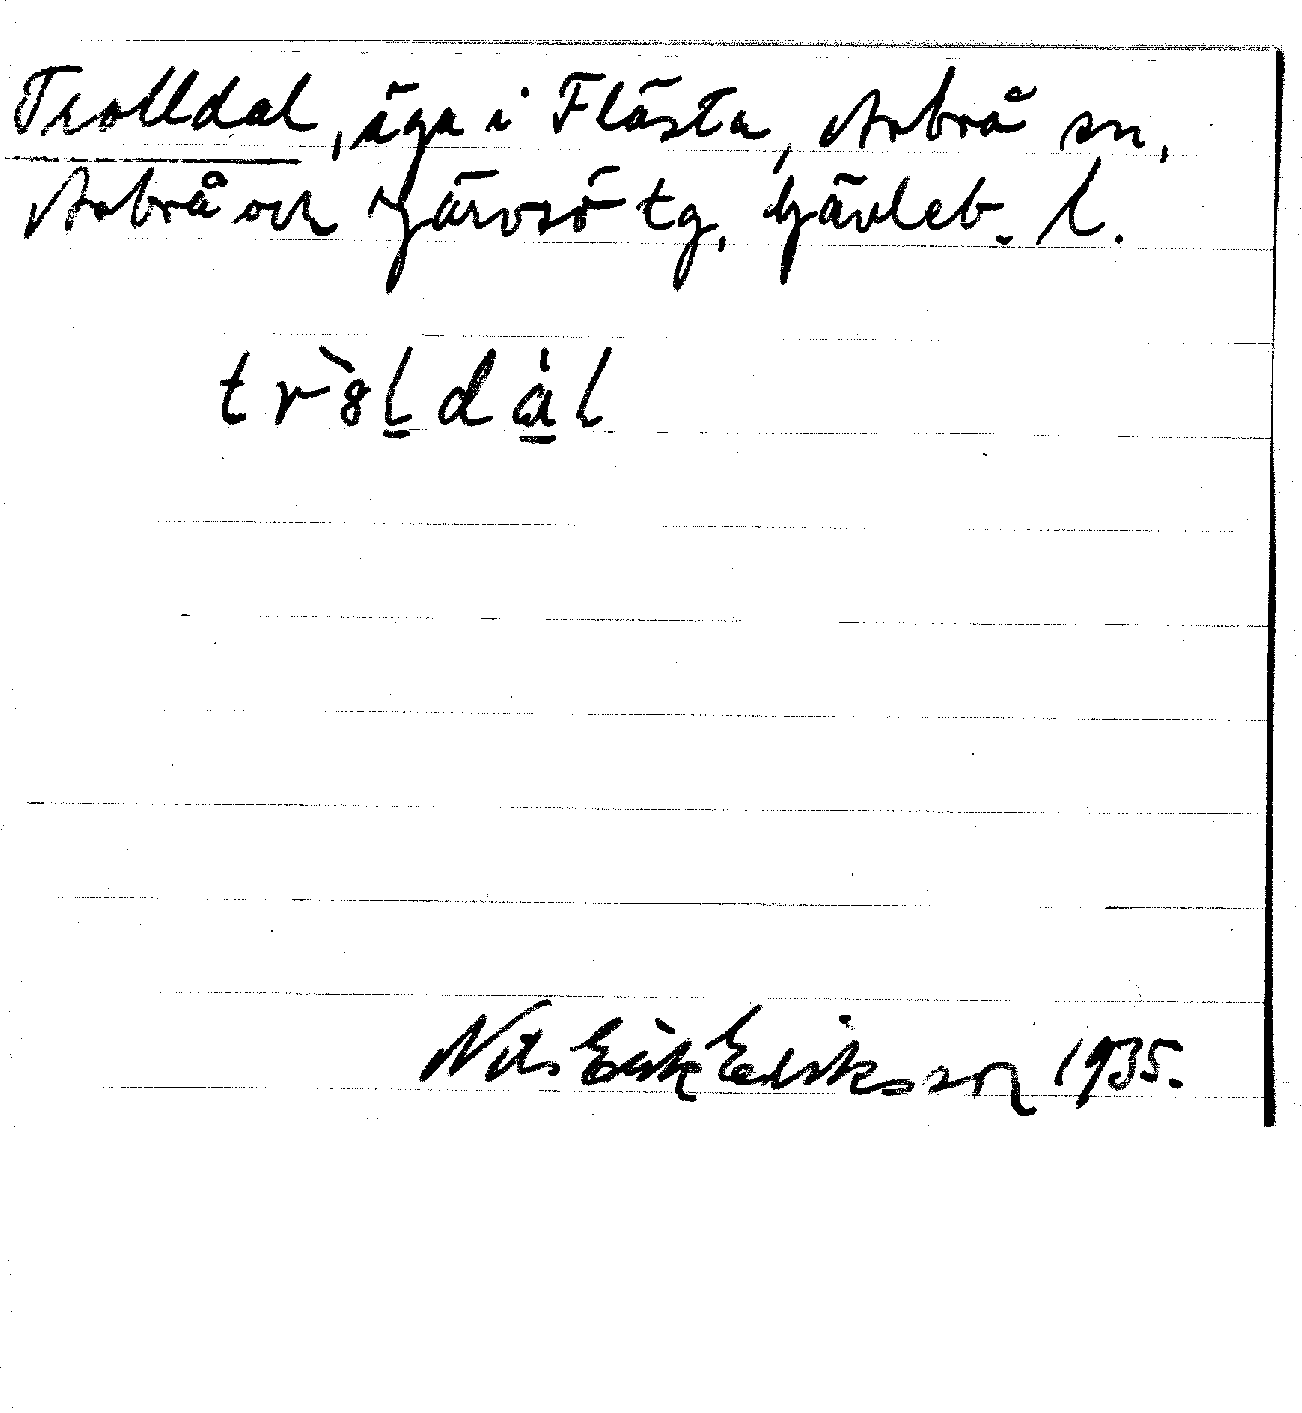 Trolldal, äga i Flästa, Arbrå sn,
Arbrå och Järvsö tg, Gävleb. l.
tr8̀ḻda̱̍l
Nils Erik Eriksson 1935.